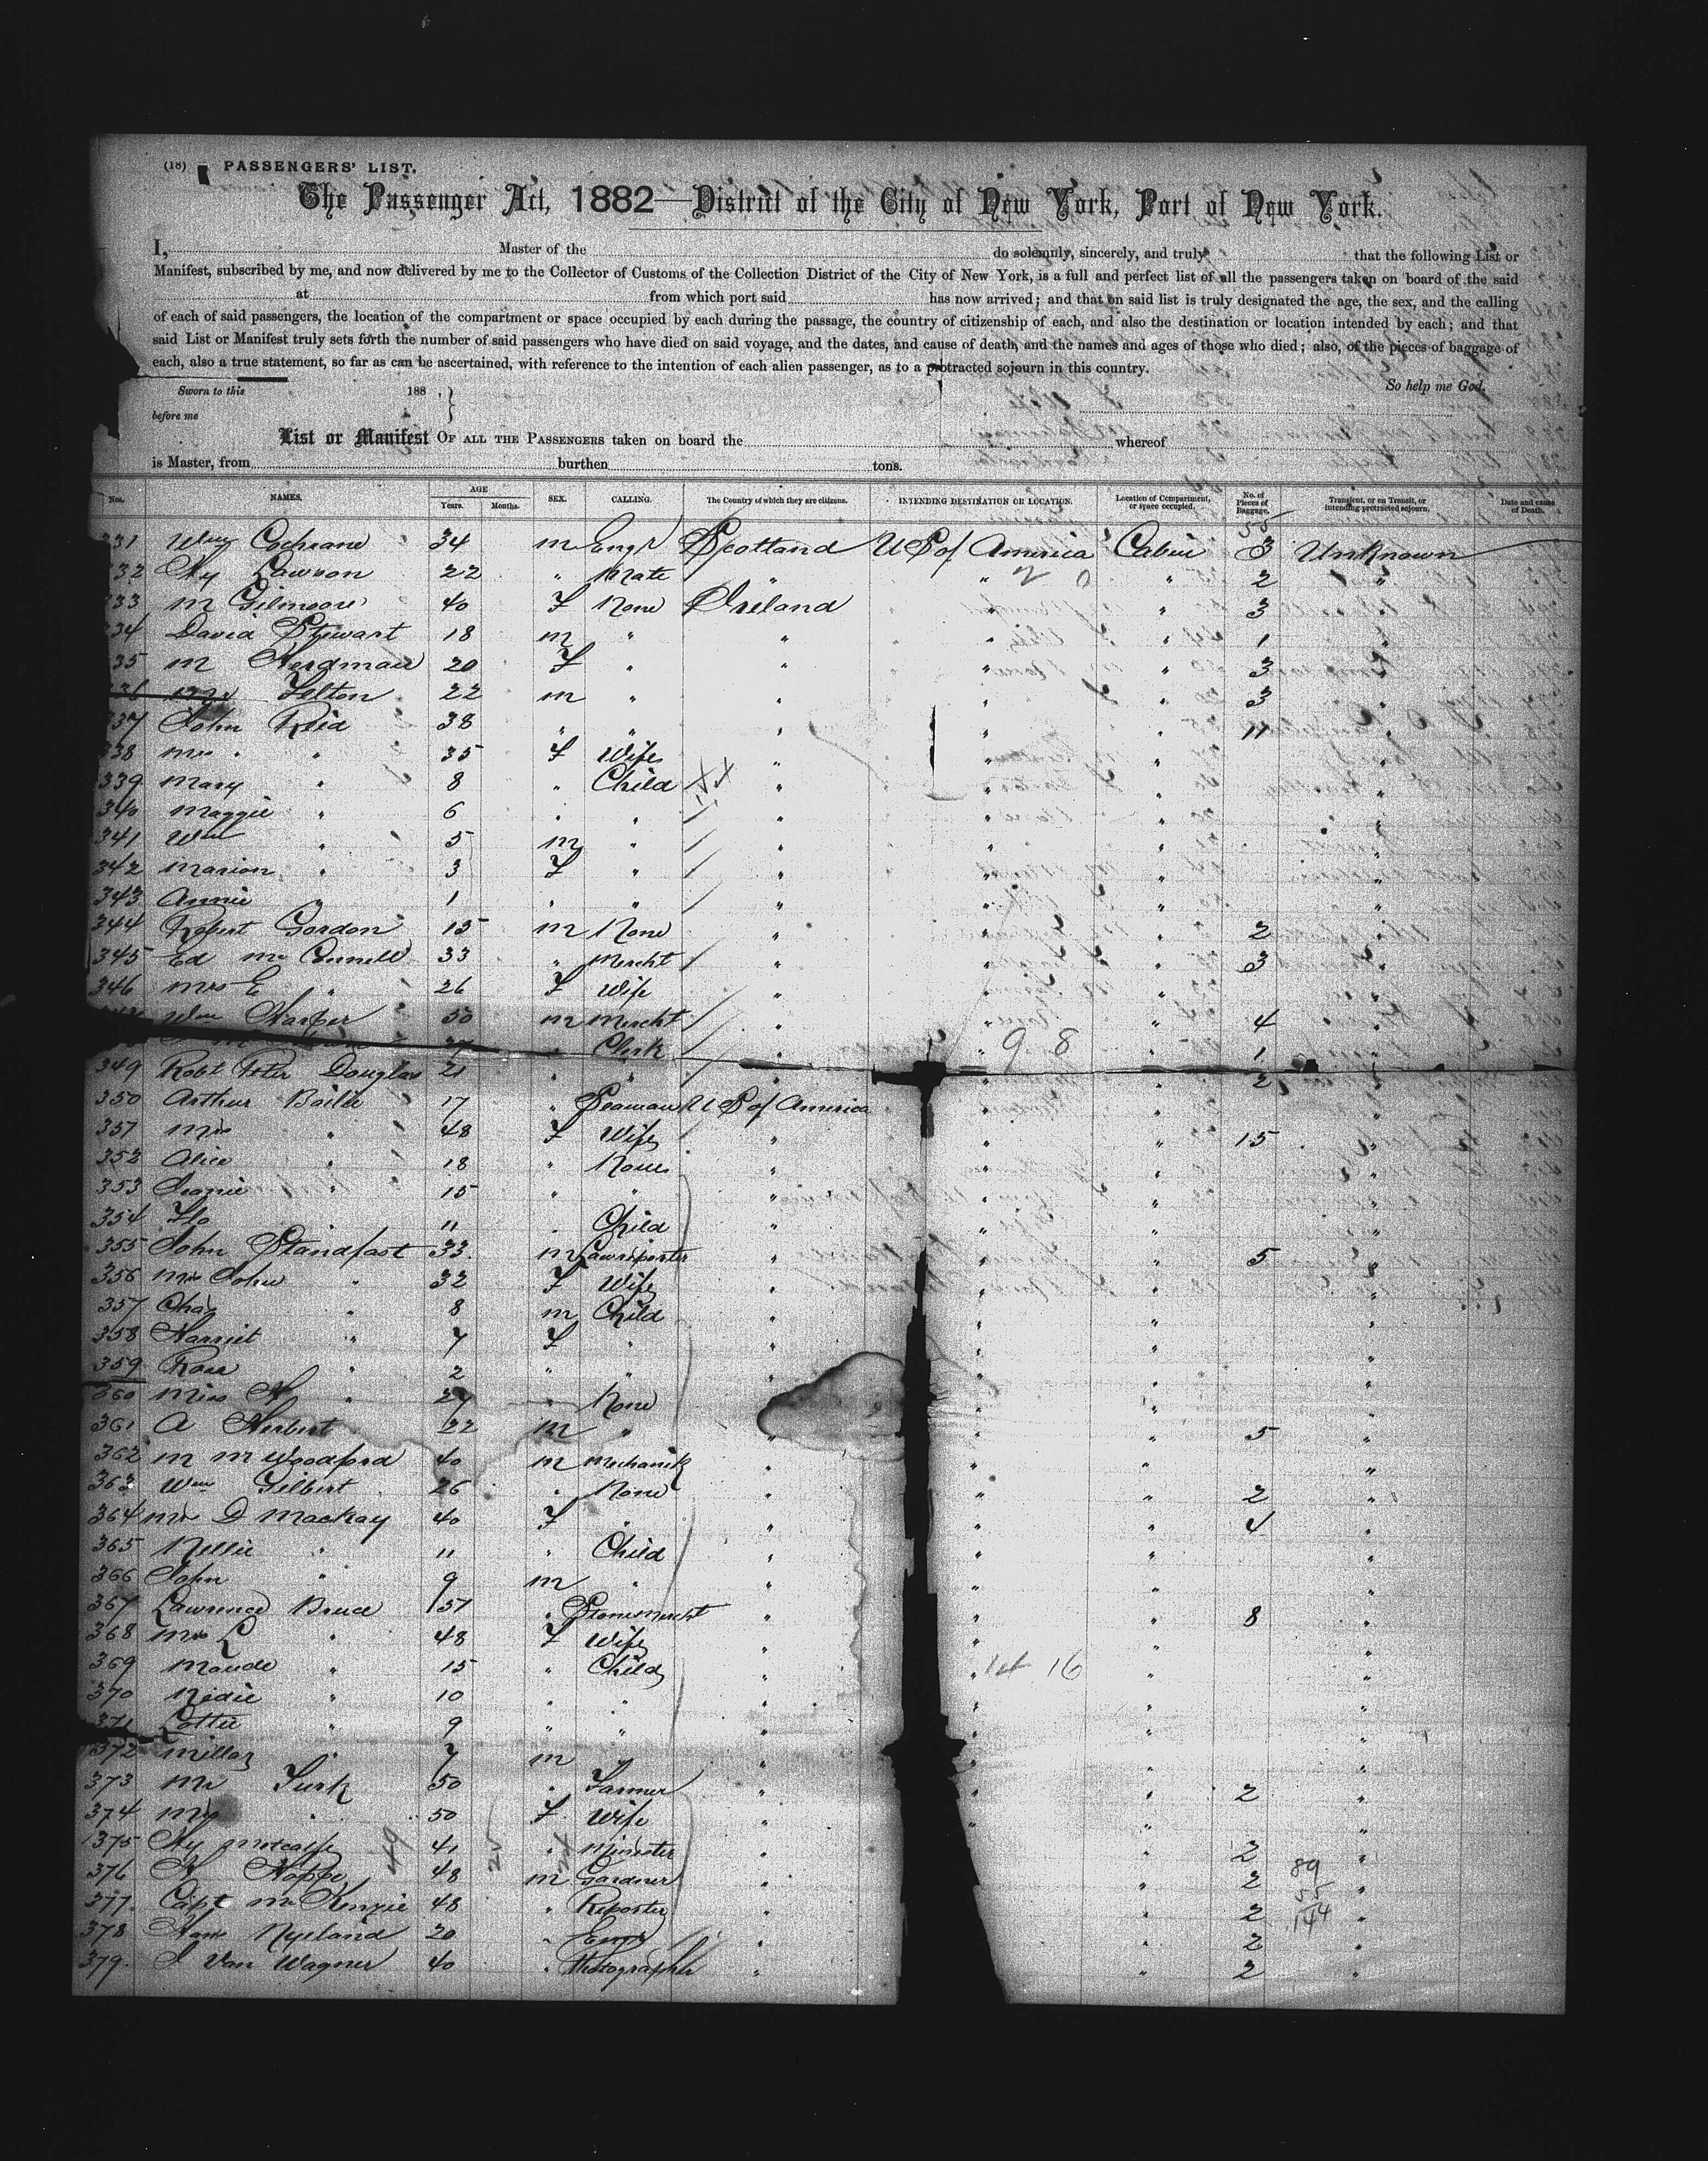 (18) PASSENGERS' LIST.
The Passenger Act, 1882—District of the City of New York, Port of New York.
I, Master of the do solemnly, sincerely, and truly that the following List or
Manifest, subscribed by me, and now delivered by me to the Collector of Customs of the Collection District of the City of New York, is a full and perfect list of all the passengers taken on board of the said
at from which port said has now arrived; and that on said list is truly designated the age, the sex, and the calling
of each of said passengers, the location of the compartment or space occupied by each during the passage, the country of citizenship of each, and also the destination or location intended by each; and that
said List or Manifest truly sets forth the number of said passengers who have died on said voyage, and the dates, and cause of death, and the names and ages of those who died; also, of the pieces of baggage of
each, also a true statement, so far as can be ascertained, with reference to the intention of each alien passenger, as to a protracted sojourn in this country.
Sworn to this 188 . } So help me God.
before me
List or Manifest OF ALL THE PASSENGERS taken on board the whereof
is Master, from burthen tons.
Nos. NAMES. AGE Years. Months. SEX. CALLING. The Country of which they are citizens. INTENDING DESTINATION OR LOCATION. Location of Compartment, or space occupied. No. of Pieces of Baggage. Transient, or on Transit, or intending protracted sojourn. Date and cause of Death.
55
331 Wm Cochrane 34 m Engr Scotland U S of America Cabin 3 Unknown
332 Hy Lawson 22 " Mate " " " 2 "
333 M Gilmoore 40 F None Ireland " " 3 "
334 David Stewart 18 m " " " " 1 "
335 M Herdman 20 F " " " " 3 "
336 Felton 22 m " " " " 3 "
337 John Reid 38 " " " " " 11 "
338 Mrs " " 35 F Wife " " " "
339 Mary " 8 " Child XX " " " "
340 Maggie " 6 " " " " " "
341 Wm " 5 m " " " " "
342 Marion " 3 F " " " " "
343 Annie " 1 " " " " " "
344 Robert Gordon 15 m None " " " 2 "
345 Ed Mc Connell 33 " Mercht " " " 3 "
346 Mrs E " 26 F Wife " " " "
Wm Harper 50 m Mercht " " " 4 "
" Clerk " " 9 8 " 1 "
349 Robt Peter Douglas 21 " " " 2 "
350 Arthur Bailie 17 " Seaman U S of America
351 Mrs " 48 F Wife " " " 15 "
352 Alice " 18 " None " " " "
353 " 15 " " " " " "
354 Flo 11 " Child " " " "
355 John Standfast 33 m Lawreporter " " " 5 "
356 Mrs John " 32 F Wife " " " "
357 Chas " 8 m Child " " " "
358 Harriet " 7 F " " " " "
359 Rose " 2 " " " " " "
360 Miss H " 27 " None " " "
361 A Herbert 22 m " " " " 5 "
362 M M Woodford 40 m Mechanik " " " "
363 Wm Gilbert 26 " None " " " 2 "
364 Mrs D Mackay 40 F " " " " 4 "
365 Nellie " 11 " Child " " " "
366 John " 9 m " " " " "
367 Lawrence Bruce 57 " Stonemercht " " " 8 "
368 Mrs L " 48 F Wife " " " "
369 Maude " 15 " Child " " 16 " "
370 Nedie " 10 " " " " " "
371 Lottie " 9 " " " " " "
372 Millar " 7 m " " " " "
373 Mr Turk 50 " Farmer " " " 2 "
374 Mrs " 50 F Wife " " " "
375 Hy Metcalfe 41 " Minister " " 2 "
376 H Hoppe 48 m Gardner " " 2 "
377 Capt Mc Kenzie 48 " Reporter " " 2 "
378 Hans Nyeland 20 " Engr " " 2 "
379 J Van Wagner 40 " Photographer " " 2 "
49
89
55
144